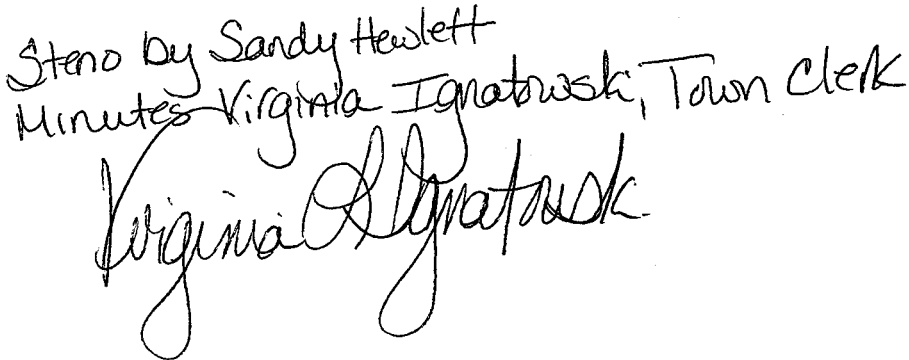 Steno by Sandy Hewlett
Minutes Virginia Ignatowski, Town Clerk
Virginia A Ignatowski